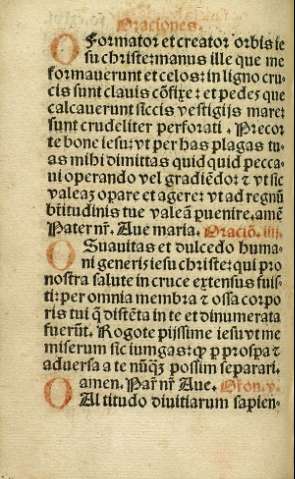 Oraciones.
O Formator et creator orbis ie
su christe: manus ille que me
formauerunt et celos: in ligno cru
cis sunt clauis cõfixe: et pedes que
calcauerunt siccis vestigijs mare:
sunt crudeliter perforati. Precor
te bone iesu: vt per has plagas tu
as mihi dimittas quid quid pecca
ui operando vel gradiẽdo: & vt sic
valeaʒ opare et agere: vt ad regnũ
bt̃itudinis tue valeã puenire. amẽ
Pater nr̃. Aue maria. Oraciõ. iiij.
O Suauitas et dulcedo huma
ni generis iesu christe: qui pro
nostra salute in cruce extensus fuis
ti: per omnia membra & ossa corpo
ris tui q̃ distẽta in te et dinumerata
fuerũt. Rogo te pijssime iesu vt me
miserum sic iungas: ꝙ p prospa &
aduersa a te nũqʒ possim separari.
amen. Pat̃ nr̃ Aue. Or̃on. v.
O Al titudo diuitiarum sapien-